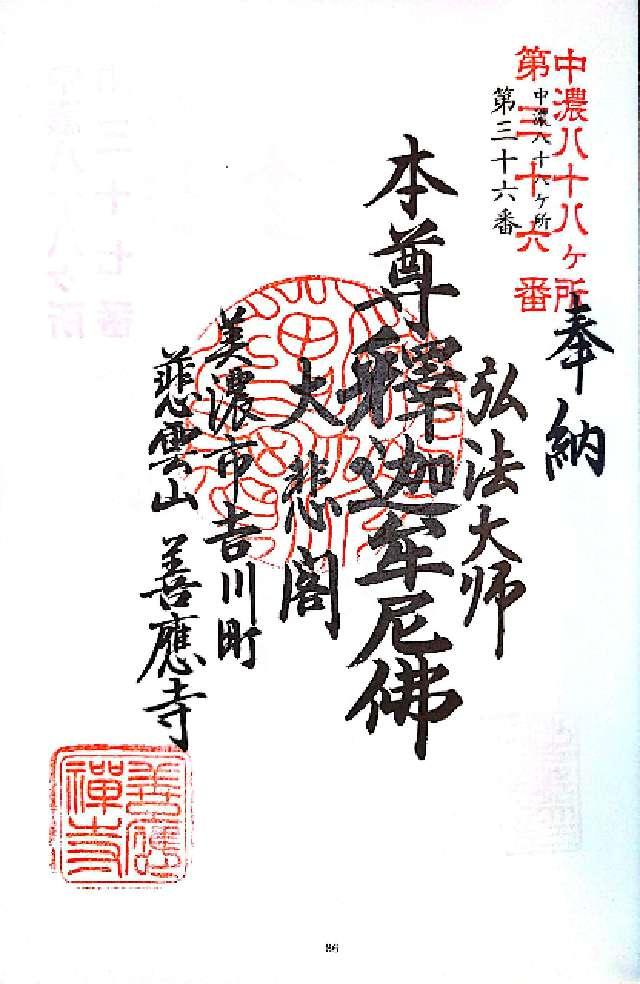 中濃八十八ヶ所
第三十六番
中濃八十八ヶ所
第三十六番
奉納
弘法大师
本尊釋迦牟尼佛
大悲閣
美濃市吉川町
慈雲山 善應寺
善應
禪寺
36